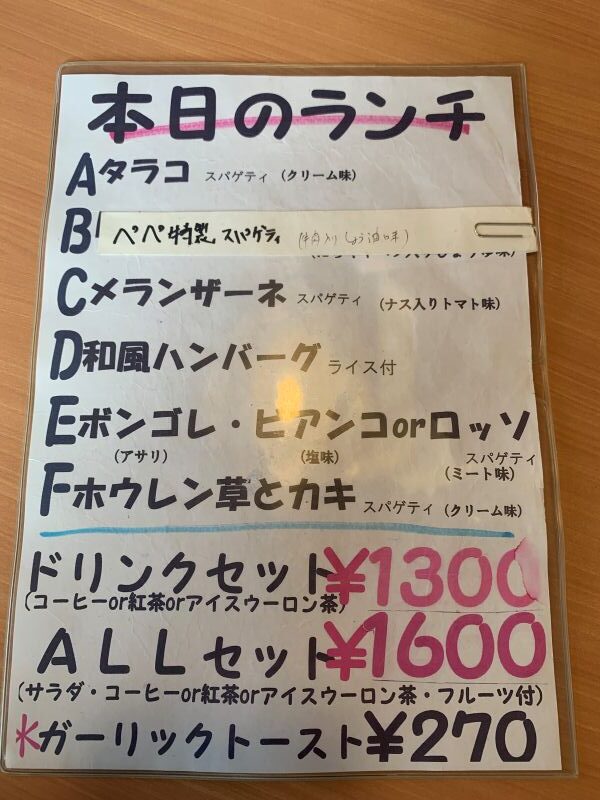 本日のランチ
Aタラコ スパゲティ (クリーム味)
B ペペ特製 スパゲティ (牛肉入りしょう油味)
Cメランザーネ スパゲティ (ナス入りトマト味)
D和風ハンバーグ ライス付
Eボンゴレ・ビアンコorロッソ
(アサリ) (塩味) (ミート味) スパゲティ
Fホウレン草とカキ スパゲティ (クリーム味)
ドリンクセット ¥1300
(コーヒーor紅茶orアイスウーロン茶)
ALLセット ¥1600
(サラダ・コーヒーor紅茶orアイスウーロン茶・フルーツ付)
*ガーリックトースト ¥270